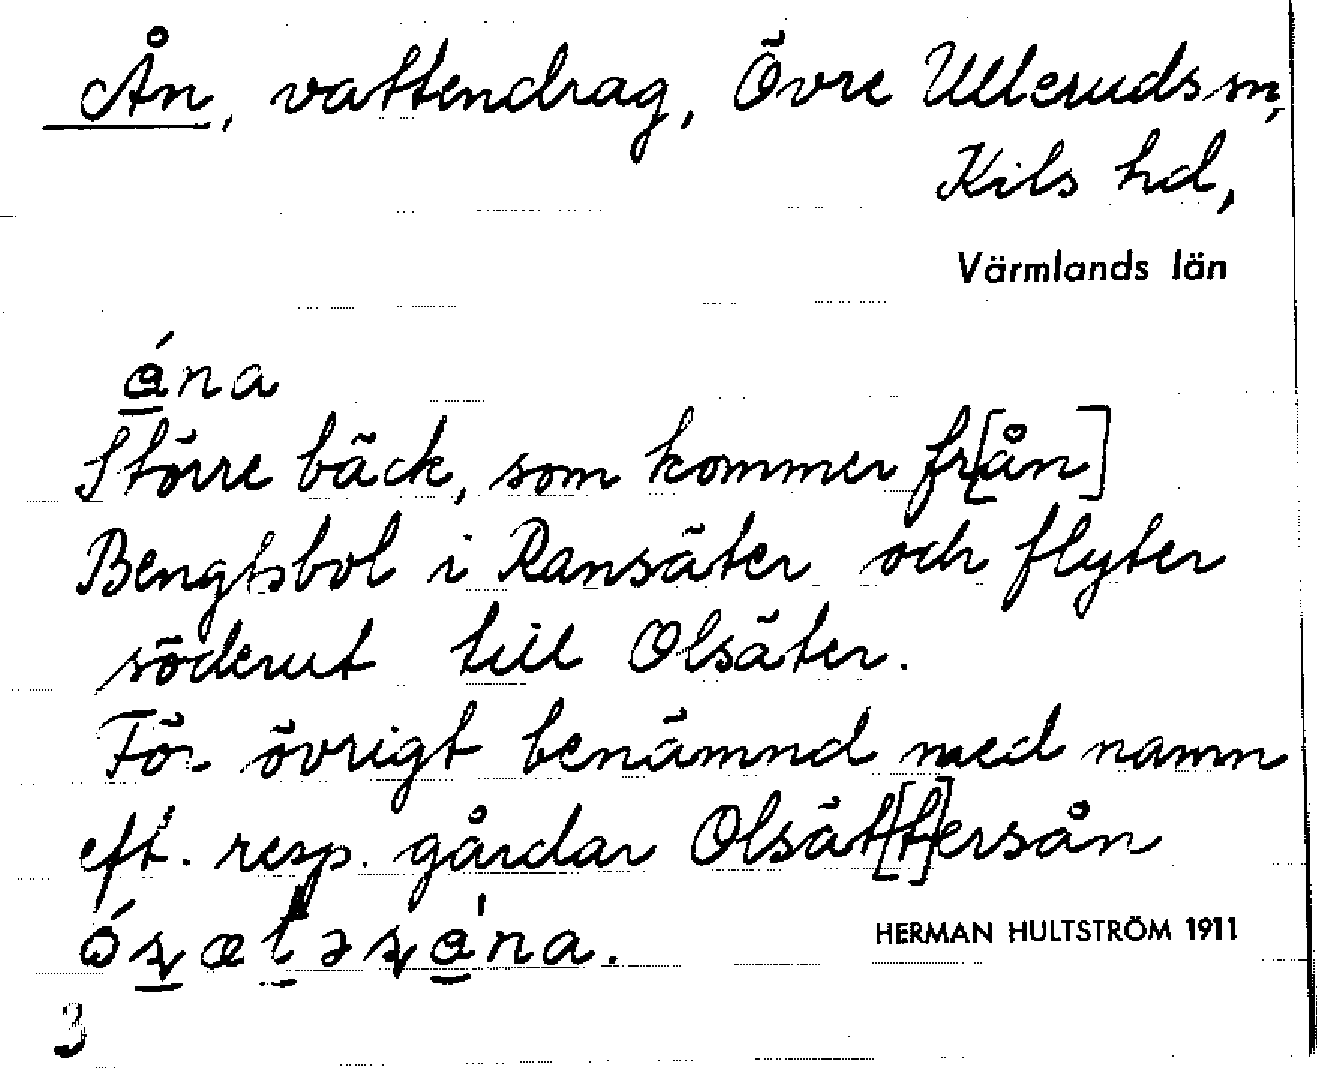 Ån, vattendrag, Övre Ulleruds sn,
Kils hd,
Värmlands län
ǻna
Större bäck, som kommer fr[ån]
Bengtsbol i Ransäter och flyter
söderut till Olsäter.
För övrigt benämnd med namn
eft. resp. gårdar Olsät[t]ersån
HERMAN HULTSTRÖM 1911
3